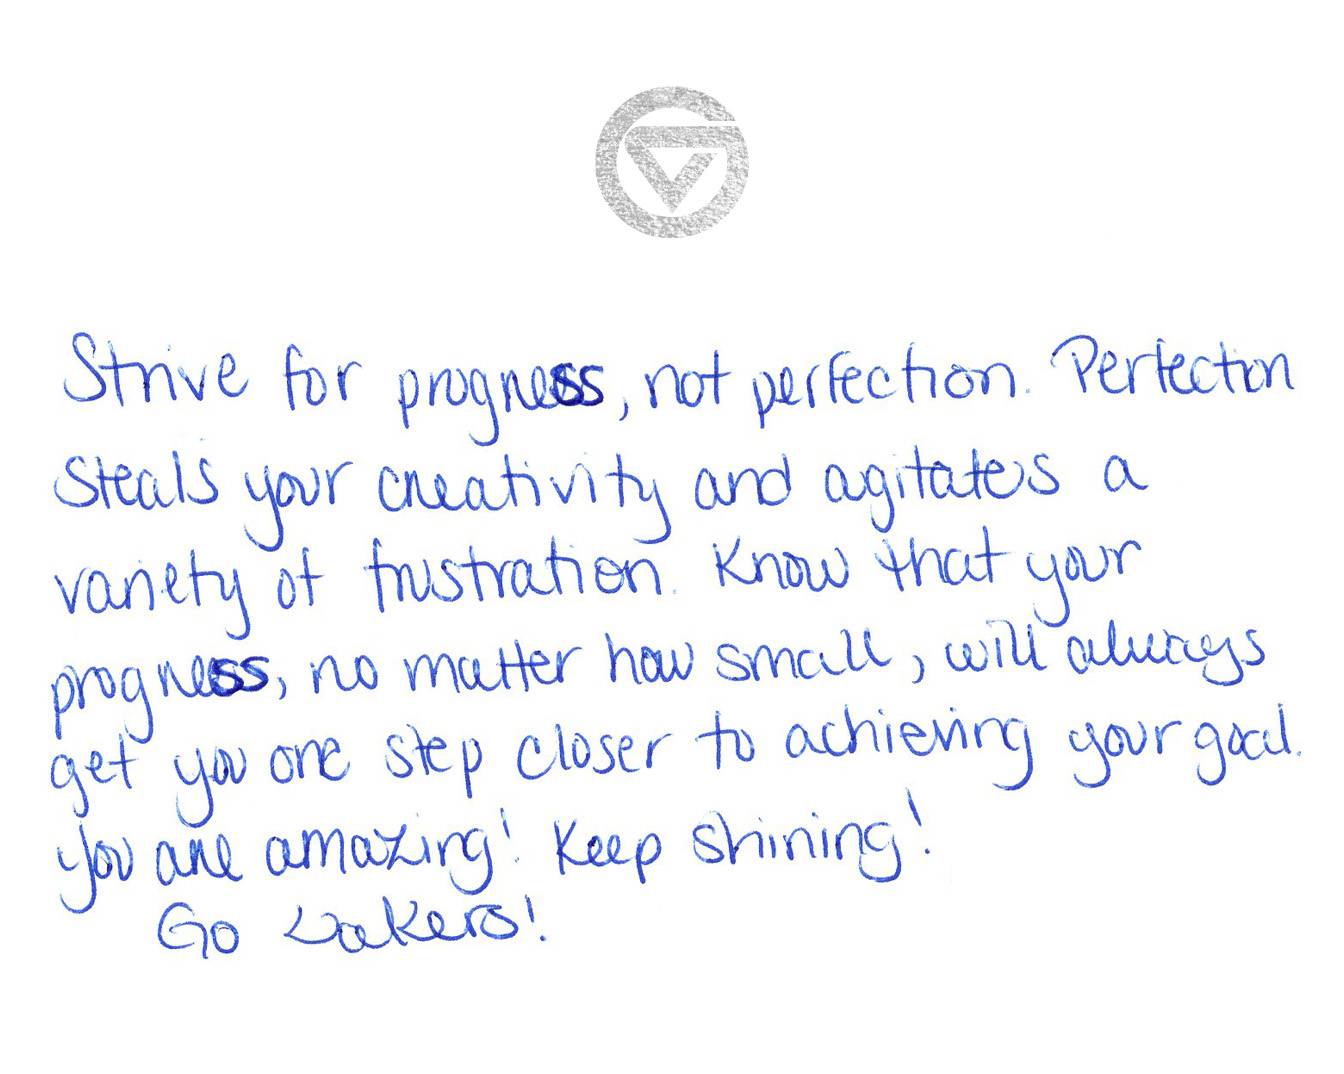 Strive for progress, not perfection. Perfection
steals your creativity and agitates a
variety of frustration. Know that your
progress, no matter how small, will always
get you one step closer to achieving your goal.
You are amazing! Keep shining!
Go Lakers!